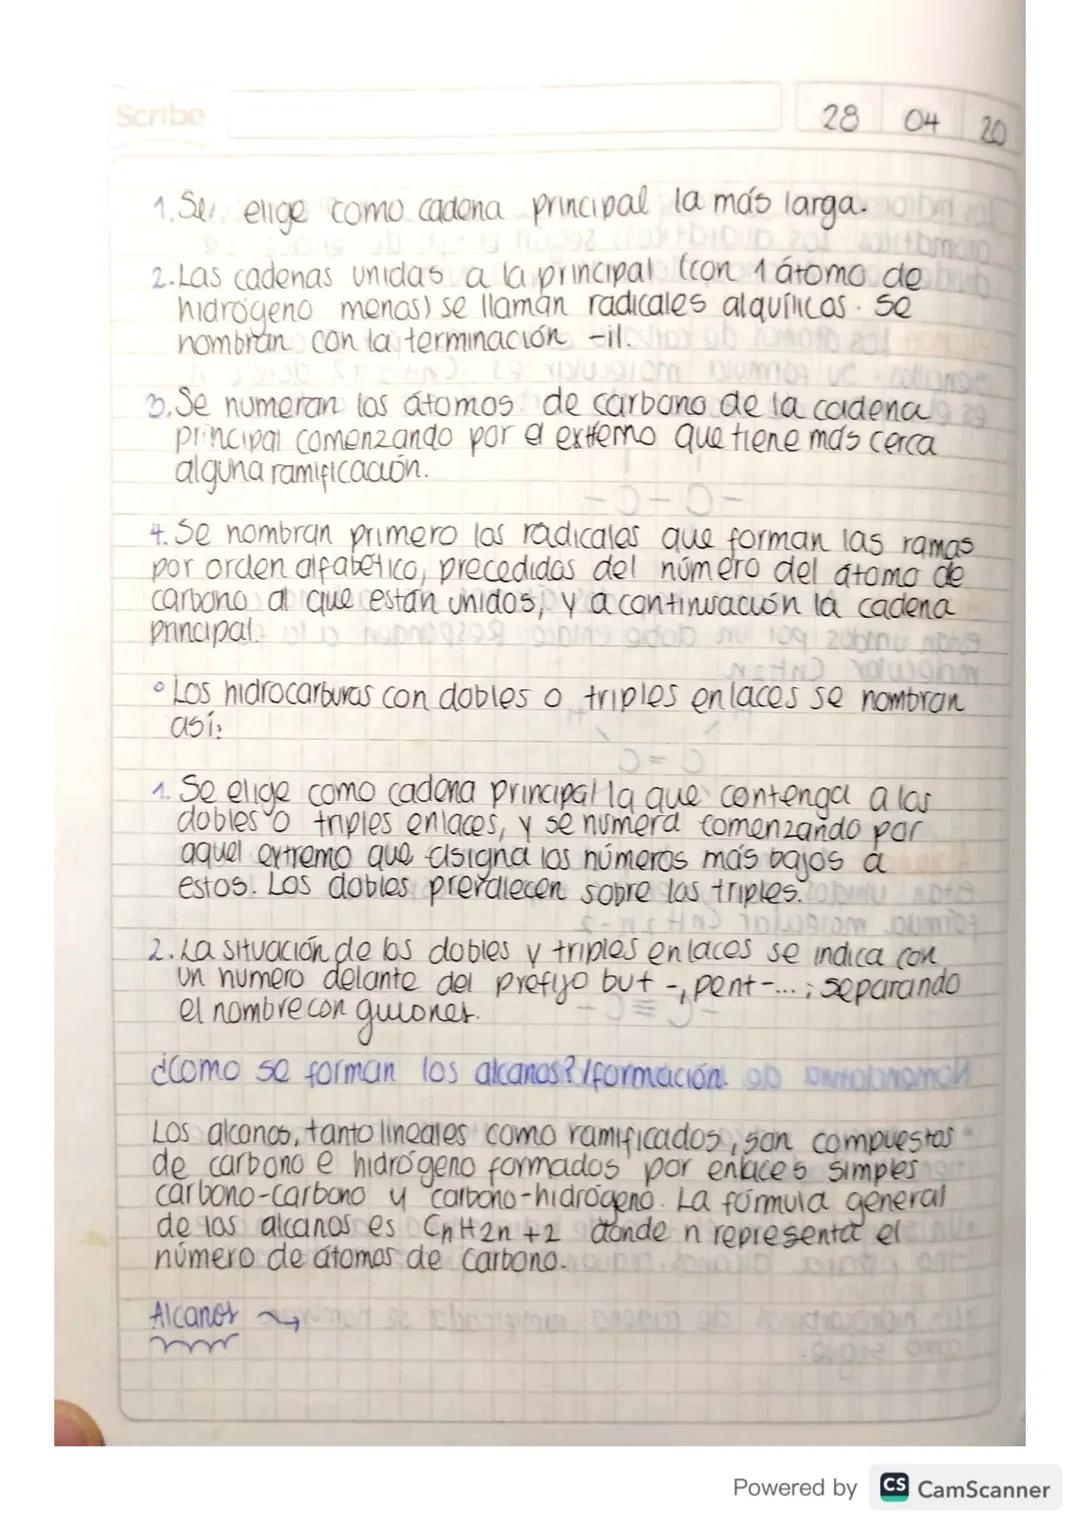 Scribe
28 04 20
1. Se elige como cadena principal la más larga.
2. Las cadenas unidas a la principal (con 1 átomo de
hidrógeno menos) se llaman radicales alquílicos. Se
nombran con la terminación -il.
3. Se numeran los átomos de carbono de la cadena
principal comenzando por el extremo que tiene más cerca
alguna ramificación.
4. Se nombran primero los radicales que forman las ramas
por orden alfabético, precedidos del número del átomo de
carbono al que están unidos, y a continuación la cadena
principal.
° Los hidrocarburos con dobles o triples enlaces se nombran
así:
1. Se elige como cadena principal la que contenga a los
dobles o triples enlaces, y se numera comenzando por
aquel extremo que asigna los números más bajos a
estos. Los dobles prevalecen sobre los triples.
2. La situación de los dobles y triples enlaces se indica con
un numero delante del prefijo but -, pent -... ; separando
el nombre con guiones.
¿Como se forman los alcanos? / formación.
Los alcanos, tanto lineales como ramificados, son compuestos
de carbono e hidrógeno formados por enlaces simples
carbono-carbono y carbono-hidrógeno. La fórmula general
de los alcanos es CnH2n +2 donde n representa el
número de átomos de carbono.
Alcanos →
Powered by CS CamScanner